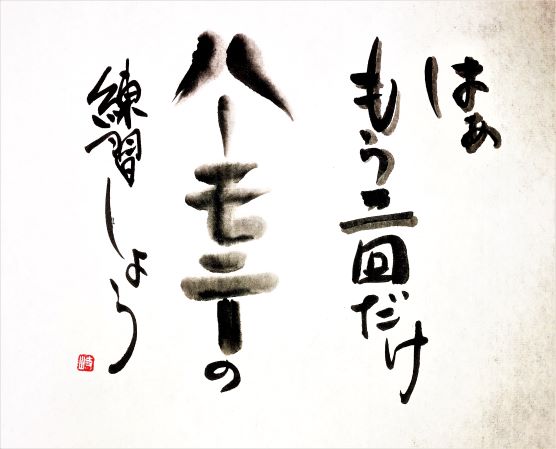 はぁ
もう二回だけ
ハーモニーの
練習しよう